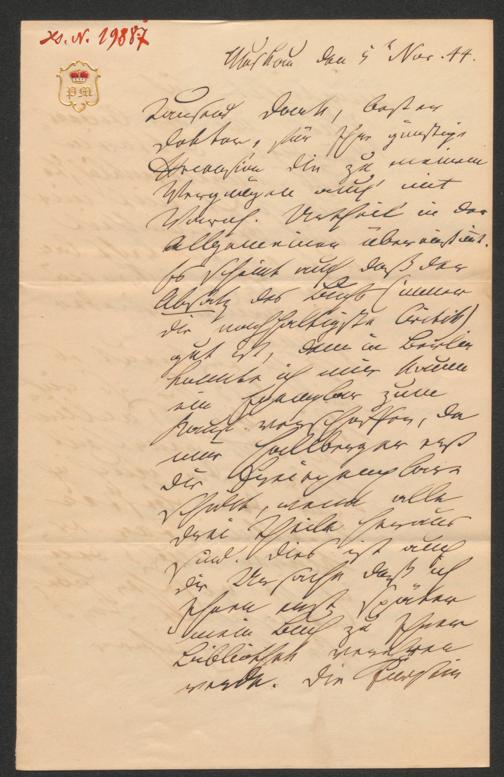 Hs. N. 19887
PM
Muskau den 5t Nov. 44.
Tausend Dank, bester
Doktor, für Ihre günstige
Recension die zu meinem
Vergnügen auch mit
Urtheil in der
Allgemeinen übereinstimt.
Es scheint auch daß der
Absatz des Buchs (immer
die nachhaltigste Critik)
gut ist, denn in Berlin
konnte ich mir kaum
ein Exemplar zum
Kauf verschaffen, da
mir Hallberger erst
die Freiexemplare
schickt, wenn alle
drei Theile heraus
sind. Dies ist auch
die Ursache daß ich
Ihnen erst später
mein Buch zu Ihrer
Bibliothek verehren
werde. Die Fürstin